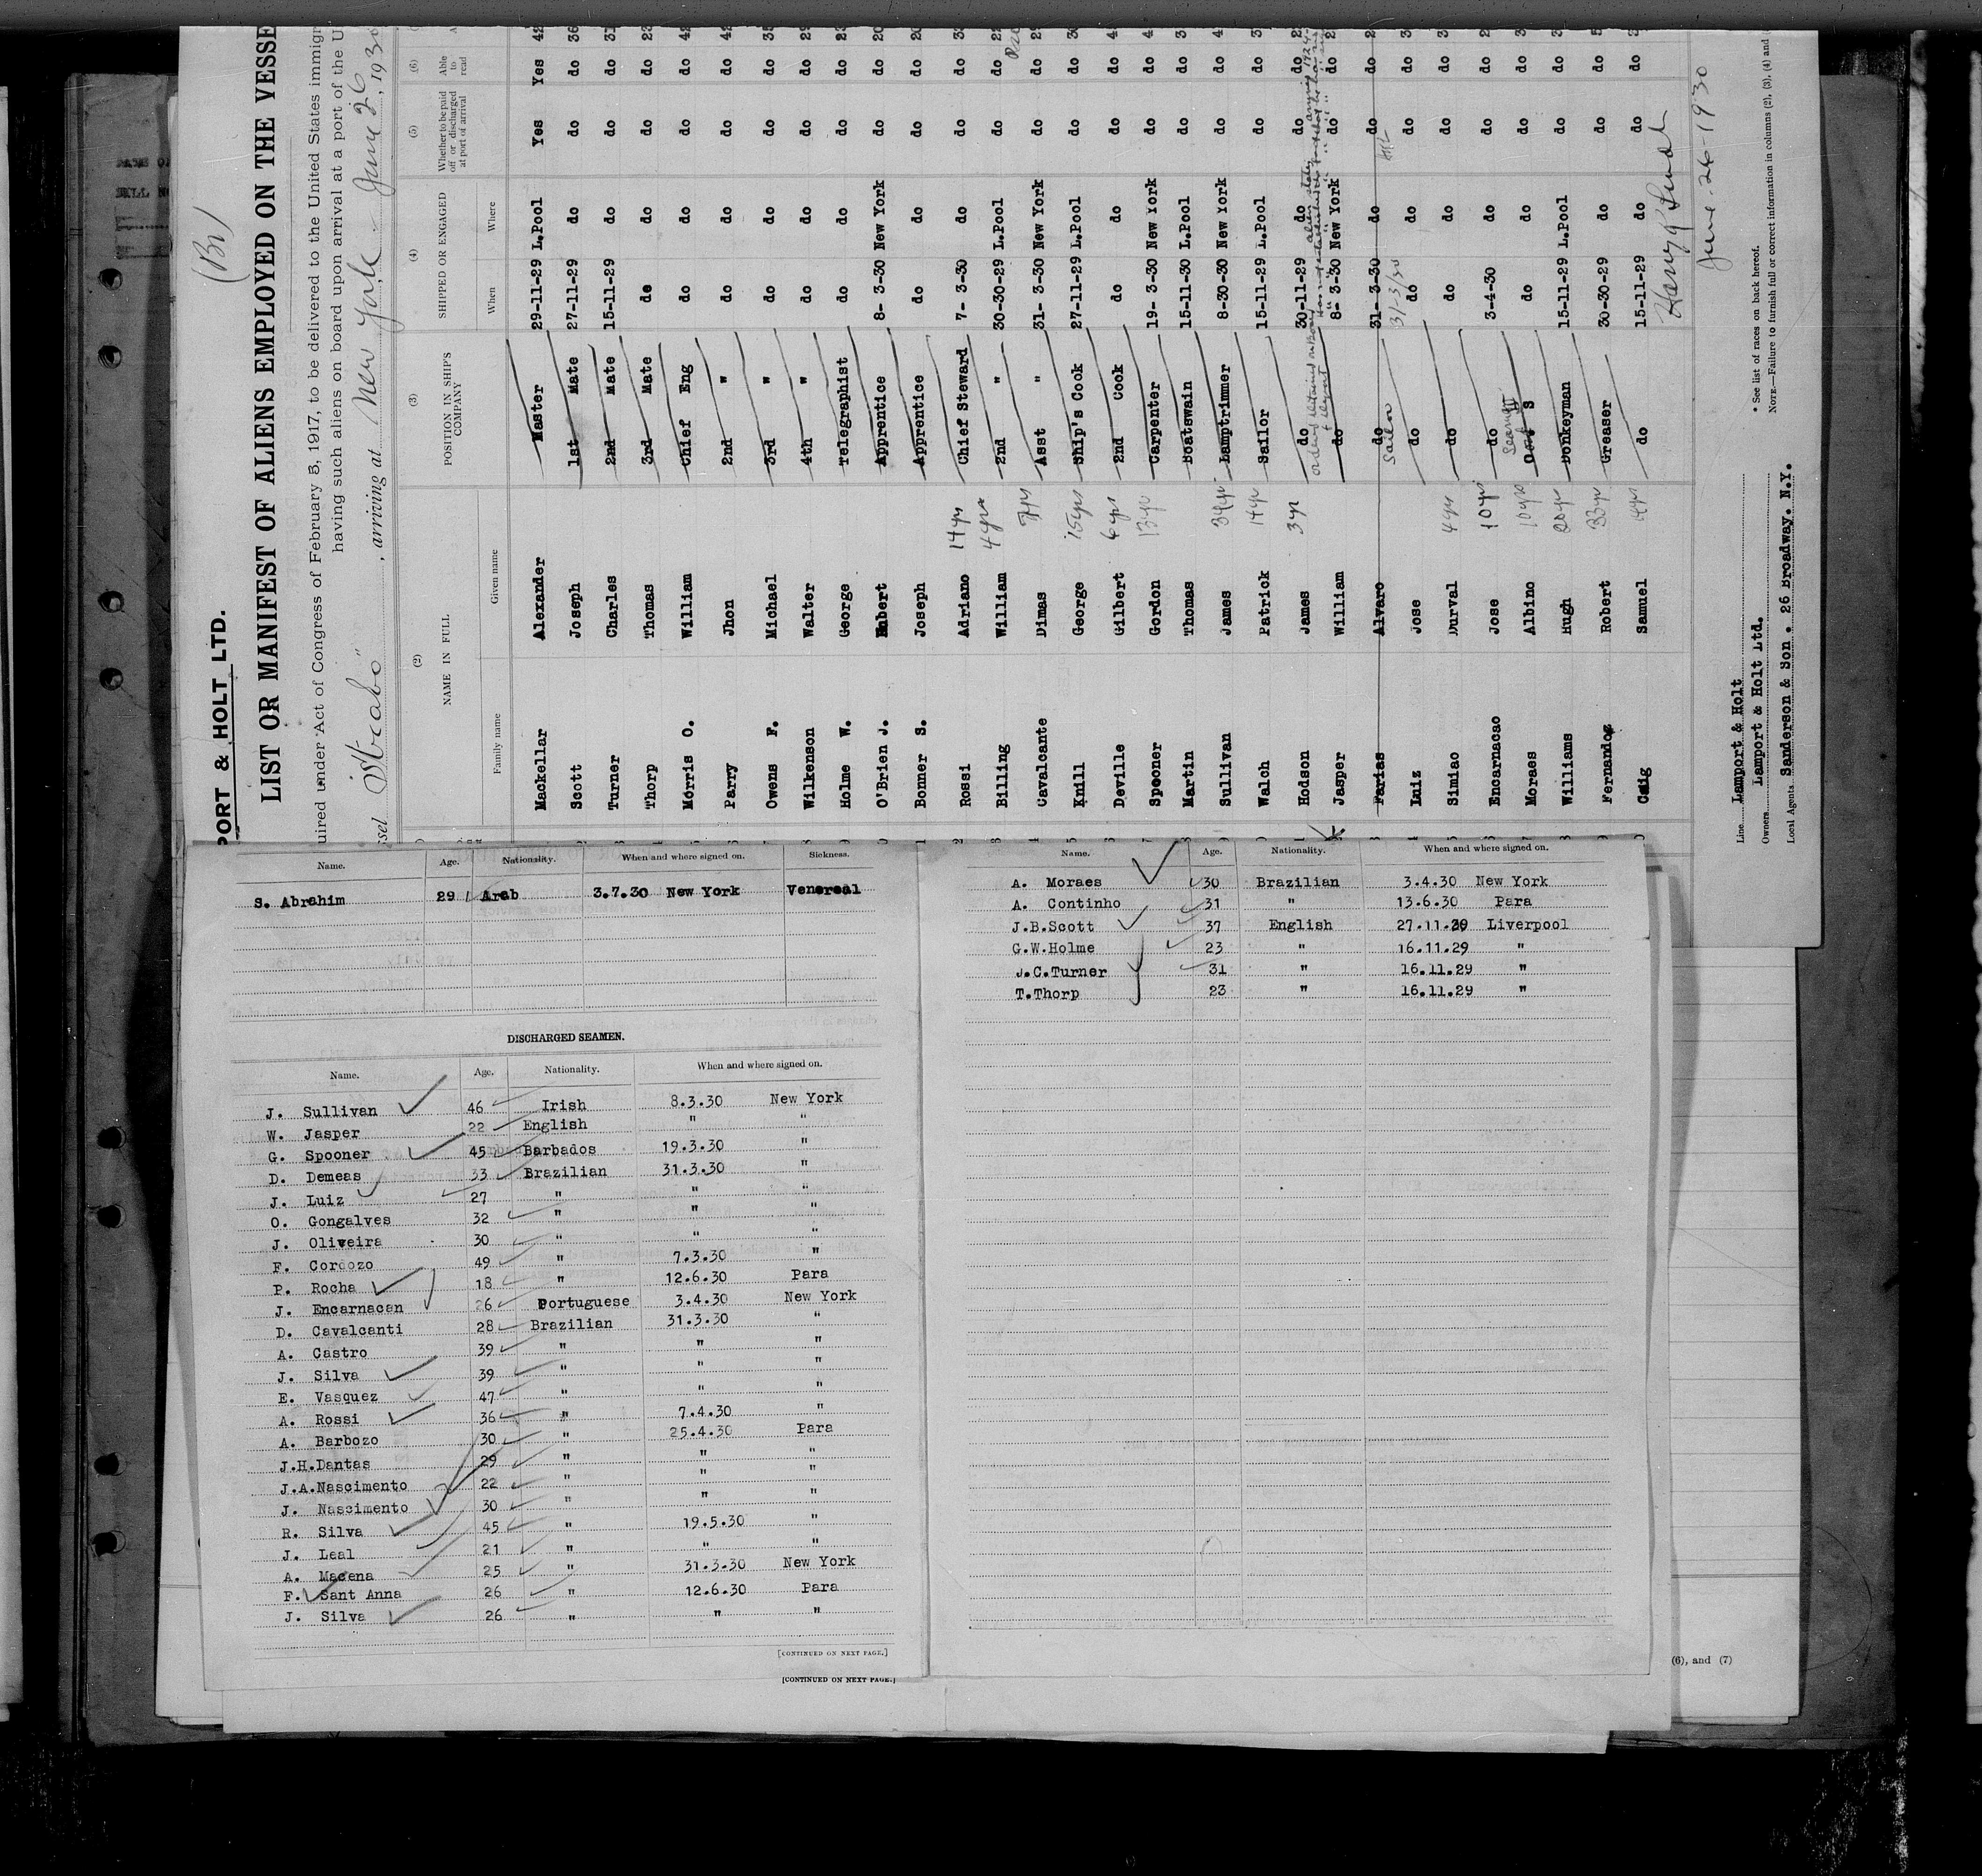 (Br)
PORT & HOLT LTD.
LIST OR MANIFEST OF ALIENS EMPLOYED ON THE VESSE
uired under Act of Congress of February 5, 1917, to be delivered to the United States immigr
having such aliens on board upon arrival at a port of the U
sel "Strabo", arriving at New York - June 26, 1930
(2) (3) (4) (5) (6)
NAME IN FULL POSITION IN SHIP'S COMPANY SHIPPED OR ENGAGED Whether to be paid off or discharged at port of arrival Able to read
Family name Given name When Where
Mackellar Alexander Master 29-11-29 L.Pool Yes Yes 42
Scott Joseph 1st Mate 27-11-29 do do do 36
Turner Charles 2nd Mate 15-11-29 do do do 31
Thorp Thomas 3rd Mate do do do do 23
Morris O. William Chief Eng do do do do 42
Parry Jhon 2nd " do do do do 42
Owens F. Michael 3rd " do do do do 35
Wilkenson Walter 4th " do do do do 29
Holme W. George Telegraphist do do do do 23
O'Brien J. Hubert Apprentice 8- 3-30 New York do do 20
Bonner S. Joseph Apprentice do do do do 20
Rossi Adriano 14yrs Chief Steward 7- 3-30 do do do
Billing William 4yrs 2nd " 30-30-29 L.Pool do do
Cavalcante Dimas Asst " 31- 3-30 New York do do
Knill George 15yrs Ship's Cook 27-11-29 L.Pool do do
Deville Gilbert 6yrs 2nd Cook do do do do
Spooner Gordon 13yr Carpenter 19- 3-30 New York do do
Martin Thomas Boatswain 15-11-30 L.Pool do do
Sullivan James Lamptrimmer 8-30-30 New York do do
Walch Patrick 14yr Sailor 15-11-29 L.Pool do do
Hodson James 3yr do 30-11-29 do do do
Jasper William do 8- 3-30 New York do do
Farias Alvaro do 31- 3-30 do do do
Luiz Jose Sailor do 31-3/30 do do do do
Simiao Durval 4yrs do do do do do
Encarnacao Jose 10yrs do 3-4-30 do do do
Moraes Albino 10yrs S do do do do
Williams Hugh 20yr Donkeyman 15-11-29 L.Pool do do
Fernandez Robert 33yr Greaser 30-30-29 do do do
Craig Samuel 4yr do 15-11-29 do do do
June-26-1930
Line Lamport & Holt
Owners Lamport & Holt Ltd.
Local Agents Sanderson & Son . 26 Broadway. N.Y.
* See list of races on back hereof.
NOTE.—Failure to furnish full or correct information in columns (2), (3), (4) and (
Name. Age. Nationality. When and where signed on. Sickness.
S. Abrahim 29 Arab 3.7.30 New York Venereal
DISCHARGED SEAMEN.
Name. Age. Nationality. When and where signed on.
J. Sullivan 46 Irish 8.3.30 New York
W. Jasper 22 English " "
G. Spooner 45 Barbados 19.3.30 "
D. Demeas 33 Brazilian 31.3.30 "
J. Luiz 27 " " "
O. Gongalves 32 " " "
J. Oliveira 30 " " "
F. Cordozo 49 " 7.3.30 "
P. Rocha 18 " 12.6.30 Para
J. Encarnacan 26 Portuguese 3.4.30 New York
D. Cavalcanti 28 Brazilian 31.3.30 "
A. Castro 39 " " "
J. Silva 39 " " "
E. Vasquez 47 " " "
A. Rossi 36 " 7.4.30 "
A. Barbozo 30 " 25.4.30 Para
J.H.Dantas 29 " " "
J.A.Nascimento 22 " " "
J. Nascimento 30 " " "
R. Silva 45 " 19.5.30 "
J. Leal 21 " " "
A. Macena 25 " 31.3.30 New York
F. Sant Anna 26 " 12.6.30 Para
J. Silva 26 " " "
[CONTINUED ON NEXT PAGE.]
[CONTINUED ON NEXT PAGE.]
Name. Age. Nationality. When and where signed on.
A. Moraes 30 Brazilian 3.4.30 New York
A. Continho 31 " 13.6.30 Para
J.B.Scott 37 English 27.11.29 Liverpool
G.W.Holme 23 " 16.11.29 "
J.C.Turner 31 " 16.11.29 "
T.Thorp 23 " 16.11.29 "
(6), and (7)